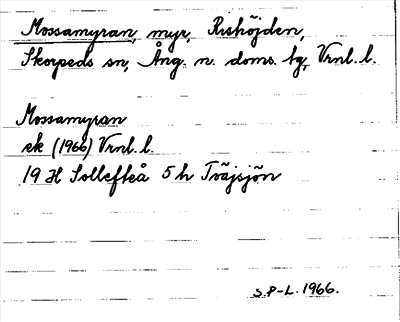 Mossamyran, myr, Rishöjden,
Skorpeds sn, Ång. n. doms. tg, Vrnl. l.
Mossamyran
ek (1966) Vrnl. l.
19 H Sollefteå 5 h Tväjsjön
S P-L. 1966.